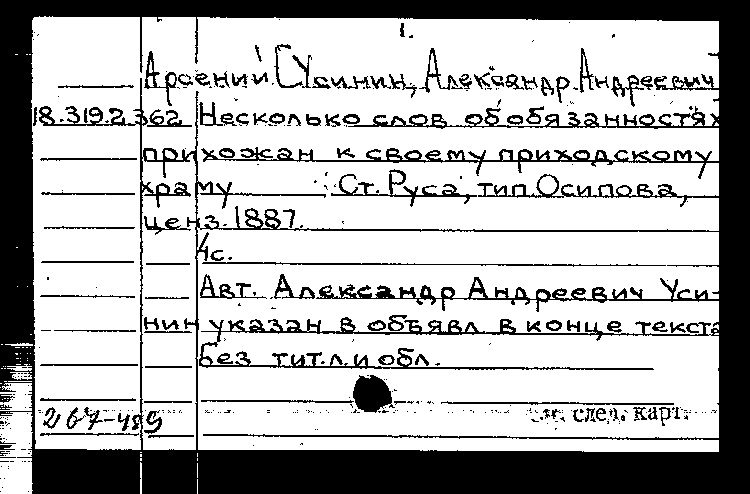 1.
Арсений Усинин, Александр Андреевич
18.319.2.362 Несколько слов об обязанностях
прихожан к своему приходскому
храму Ст. Руса, тип Осипова,
ценз. 1887.
4с.
Авт. Александр Андреевич Уси-
нин указан в объявл в конце текста
Без тит.л. и обл.
267-489
см. след. карт.